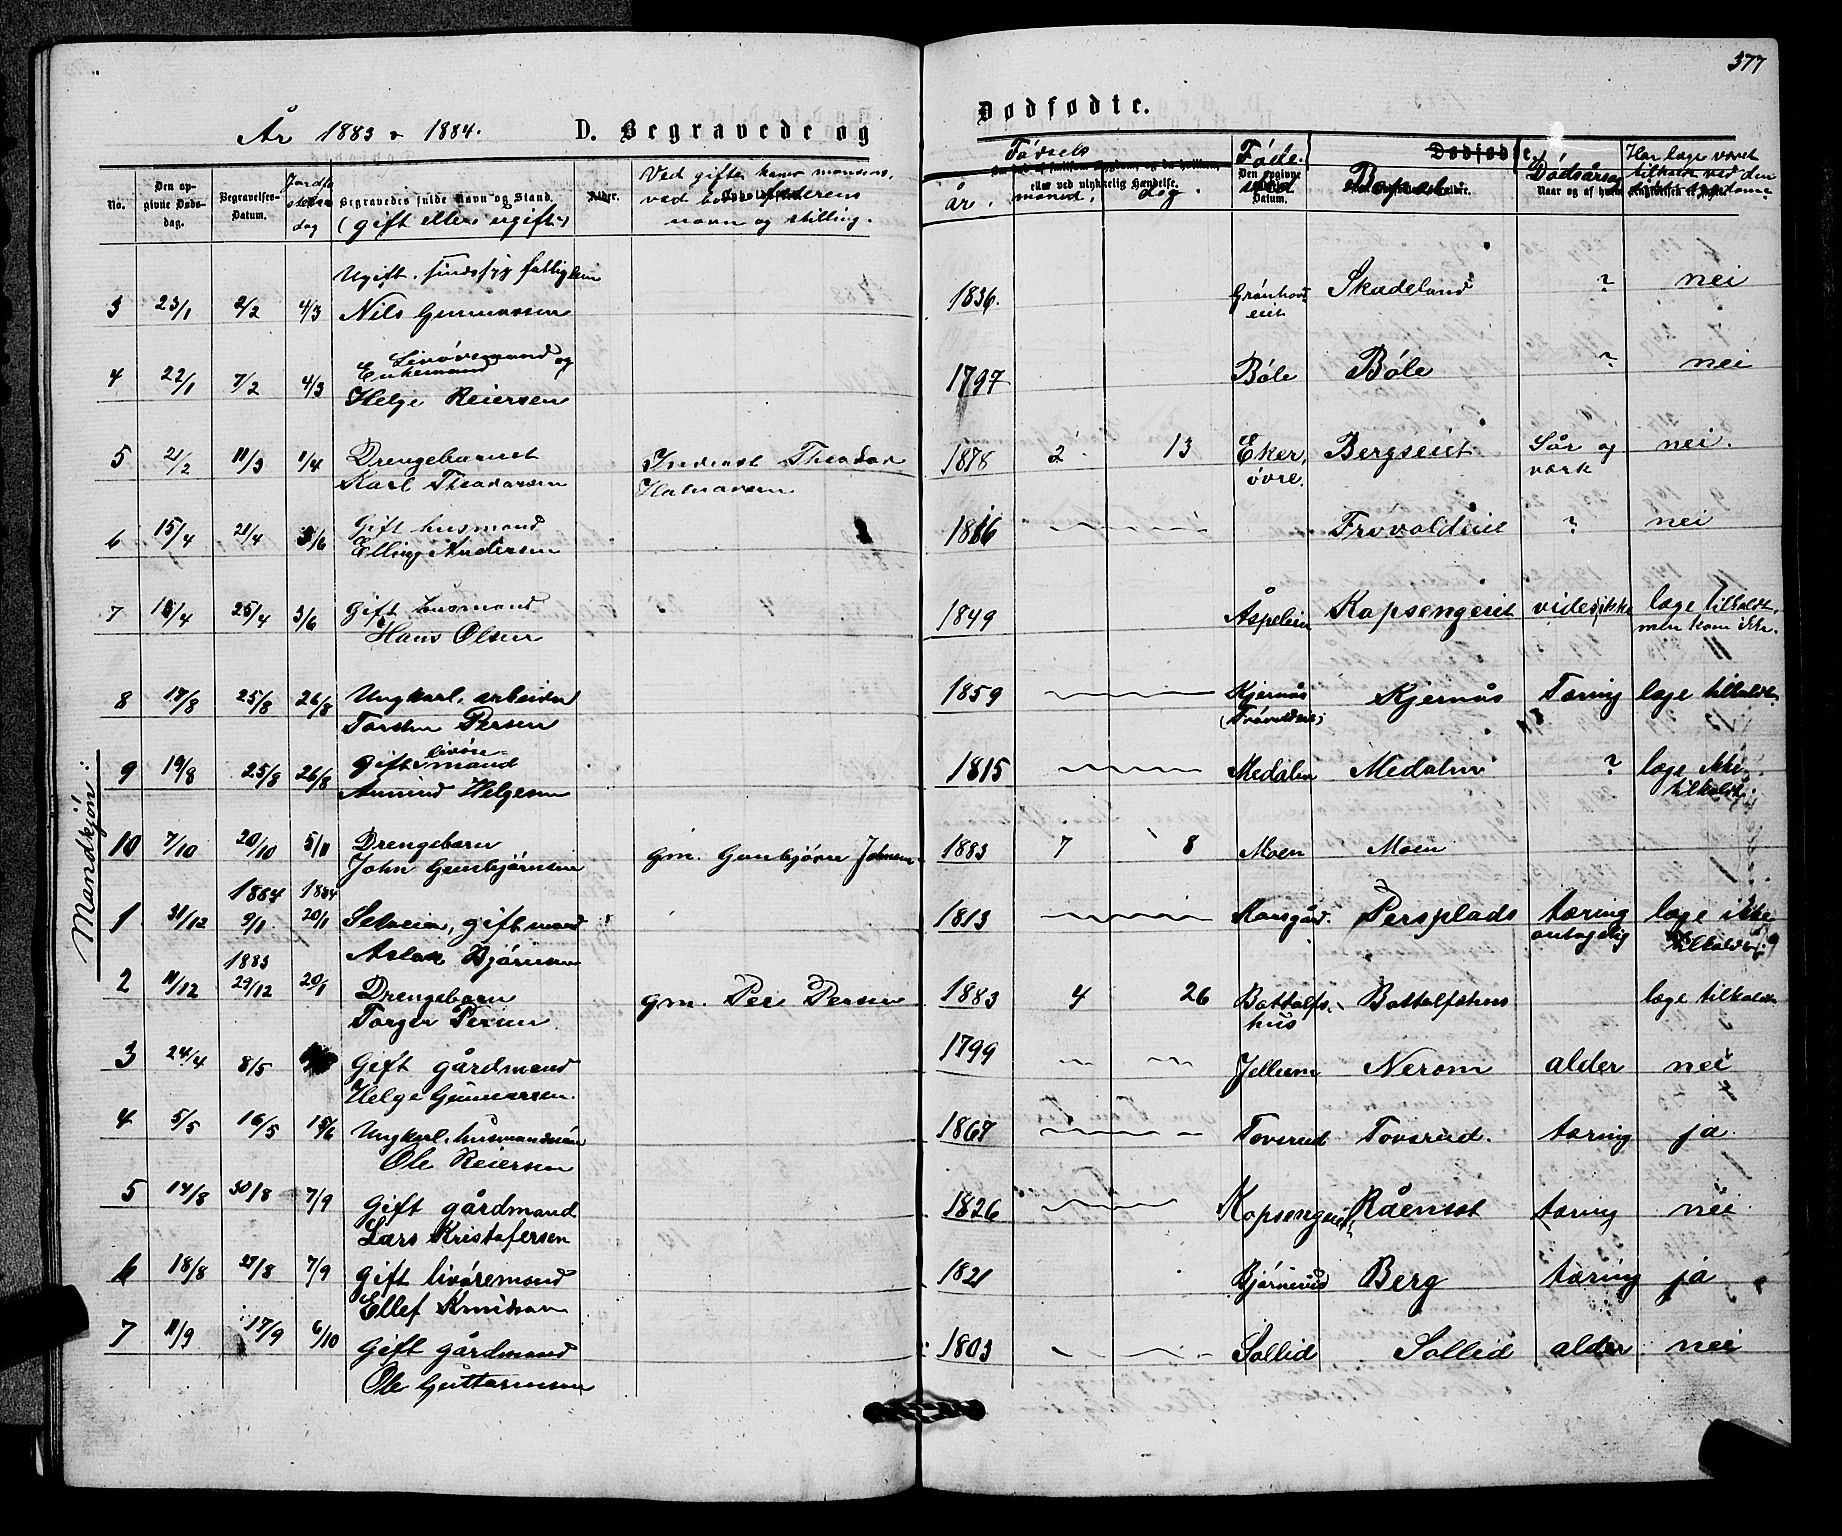 377
År 1883 & 1884. D. Begravede og Dødfødte.
No. Den opgivne Dødsdag. Begravelses-Datum. Jordfæstelsesdag Begravedes fulde Navn og Stand. (gift eller ugift) Alder. Ved gifte koner mandens, ved børn faderens navn og stilling. Fødsels år. måned. dag Fødested Bopæl Dødsårsag Har læge været tilkaldt ved den
Mandkjøn:
Ugift. sindssyg fattiglem
3 23/1 2/2 4/3 Nils Gunnarsen 1836. Skadeland ? nei
Livøremand og
Enkemand
4 22/1 7/2 4/3 Helge Reiersen 1797 Bøle Bøle ? nei
5 2/2 11/3 1/4 Drengebarnet Theodor 1878 2 13 Eker, Bergseiet Sår og nei.
Karl Theodorsen Halvorsen øvre. værk
6 15/4 21/4 3/6 Gift husmand 1816 Frøvoldeiet ? nei
Elling Andersen
7 15/4 25/4 3/6 Gift husmand 1849 Åspeleien Kopsengeiet vides ikke læge tilkaldt,
Hans Olsen men kom ikke.
8 17/8 25/8 26/8 Ungkarl, arbeider 1859 Kjernås Kjernås Tæring læge tilkaldt
Torsten Persen (Frøvoldeie)
9 19/8 25/8 26/8 Gift livøre-mand 1815 Medalen Medalen ? læge ikke
Amund Helgesen tilkaldt.
10 7/10 20/10 5/11 Drengebarn gm. Gunbjørn Johnsen 1883 7 8 Moen Moen
John Gunbjørnsen
1884 1884
1 31/12 9/1 20/1 Selveier, gift mand 1813 Persplads tæring læge ikke
Aslak Bjørnsen antagelig tilkaldt
1883
2 11/12 29/12 20/1 Drengebarn gm. Per Persen 1883 4 26 Bottolfs- Bottolfshus læge tilkaldt
Torger Persen hus
3 24/4 8/5 Gift gårdmand 1799 Jellum Nerom alder nei
Helge Gunnarsen
4 5/5 16/5 15/6 Ungkarl, husmandssøn 1867 Tovsrud Tovsrud. tæring ja
Ole Reiersen
5 14/8 30/8 7/9 Gift gårdmand 1826 Kopsengeiet tæring nei
Lars Kristofersen
6 18/8 7/9 Gift livøremand 1821 Bjørnerud Berg tæring ja
Ellef Knudsen
7 11/9 17/9 6/10 Gift gårdmand 1803 Sollid Sollid alder nei
Ole Guttormsen